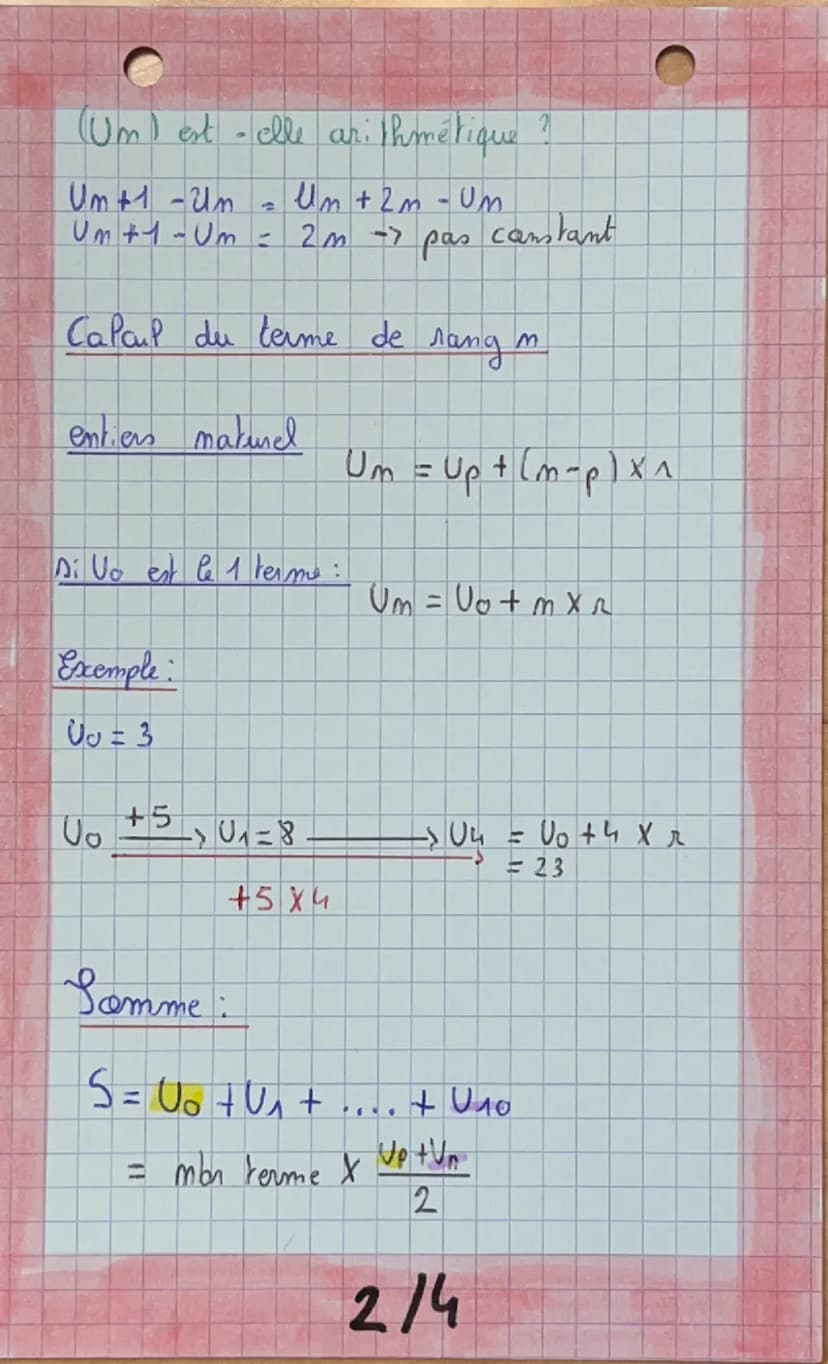 (Un) est-elle arithmétique ?
Un+1 - Un = Un + 2n - Un
Un+1 - Un = 2n -> pas constant
Calcul du terme de rang n
entiers naturel
Un = Up + (n-p) x r
Si U0 est le 1 terme :
Un = U0 + n x r
Exemple :
U0 = 3
U0 +5 → U1 = 8 → U4 = U0 + 4 x r
= 23
+5 x 4
Somme :
S = U0 + U1 + .... + U10
= nbr terme x (Up + Un)/2
2/4